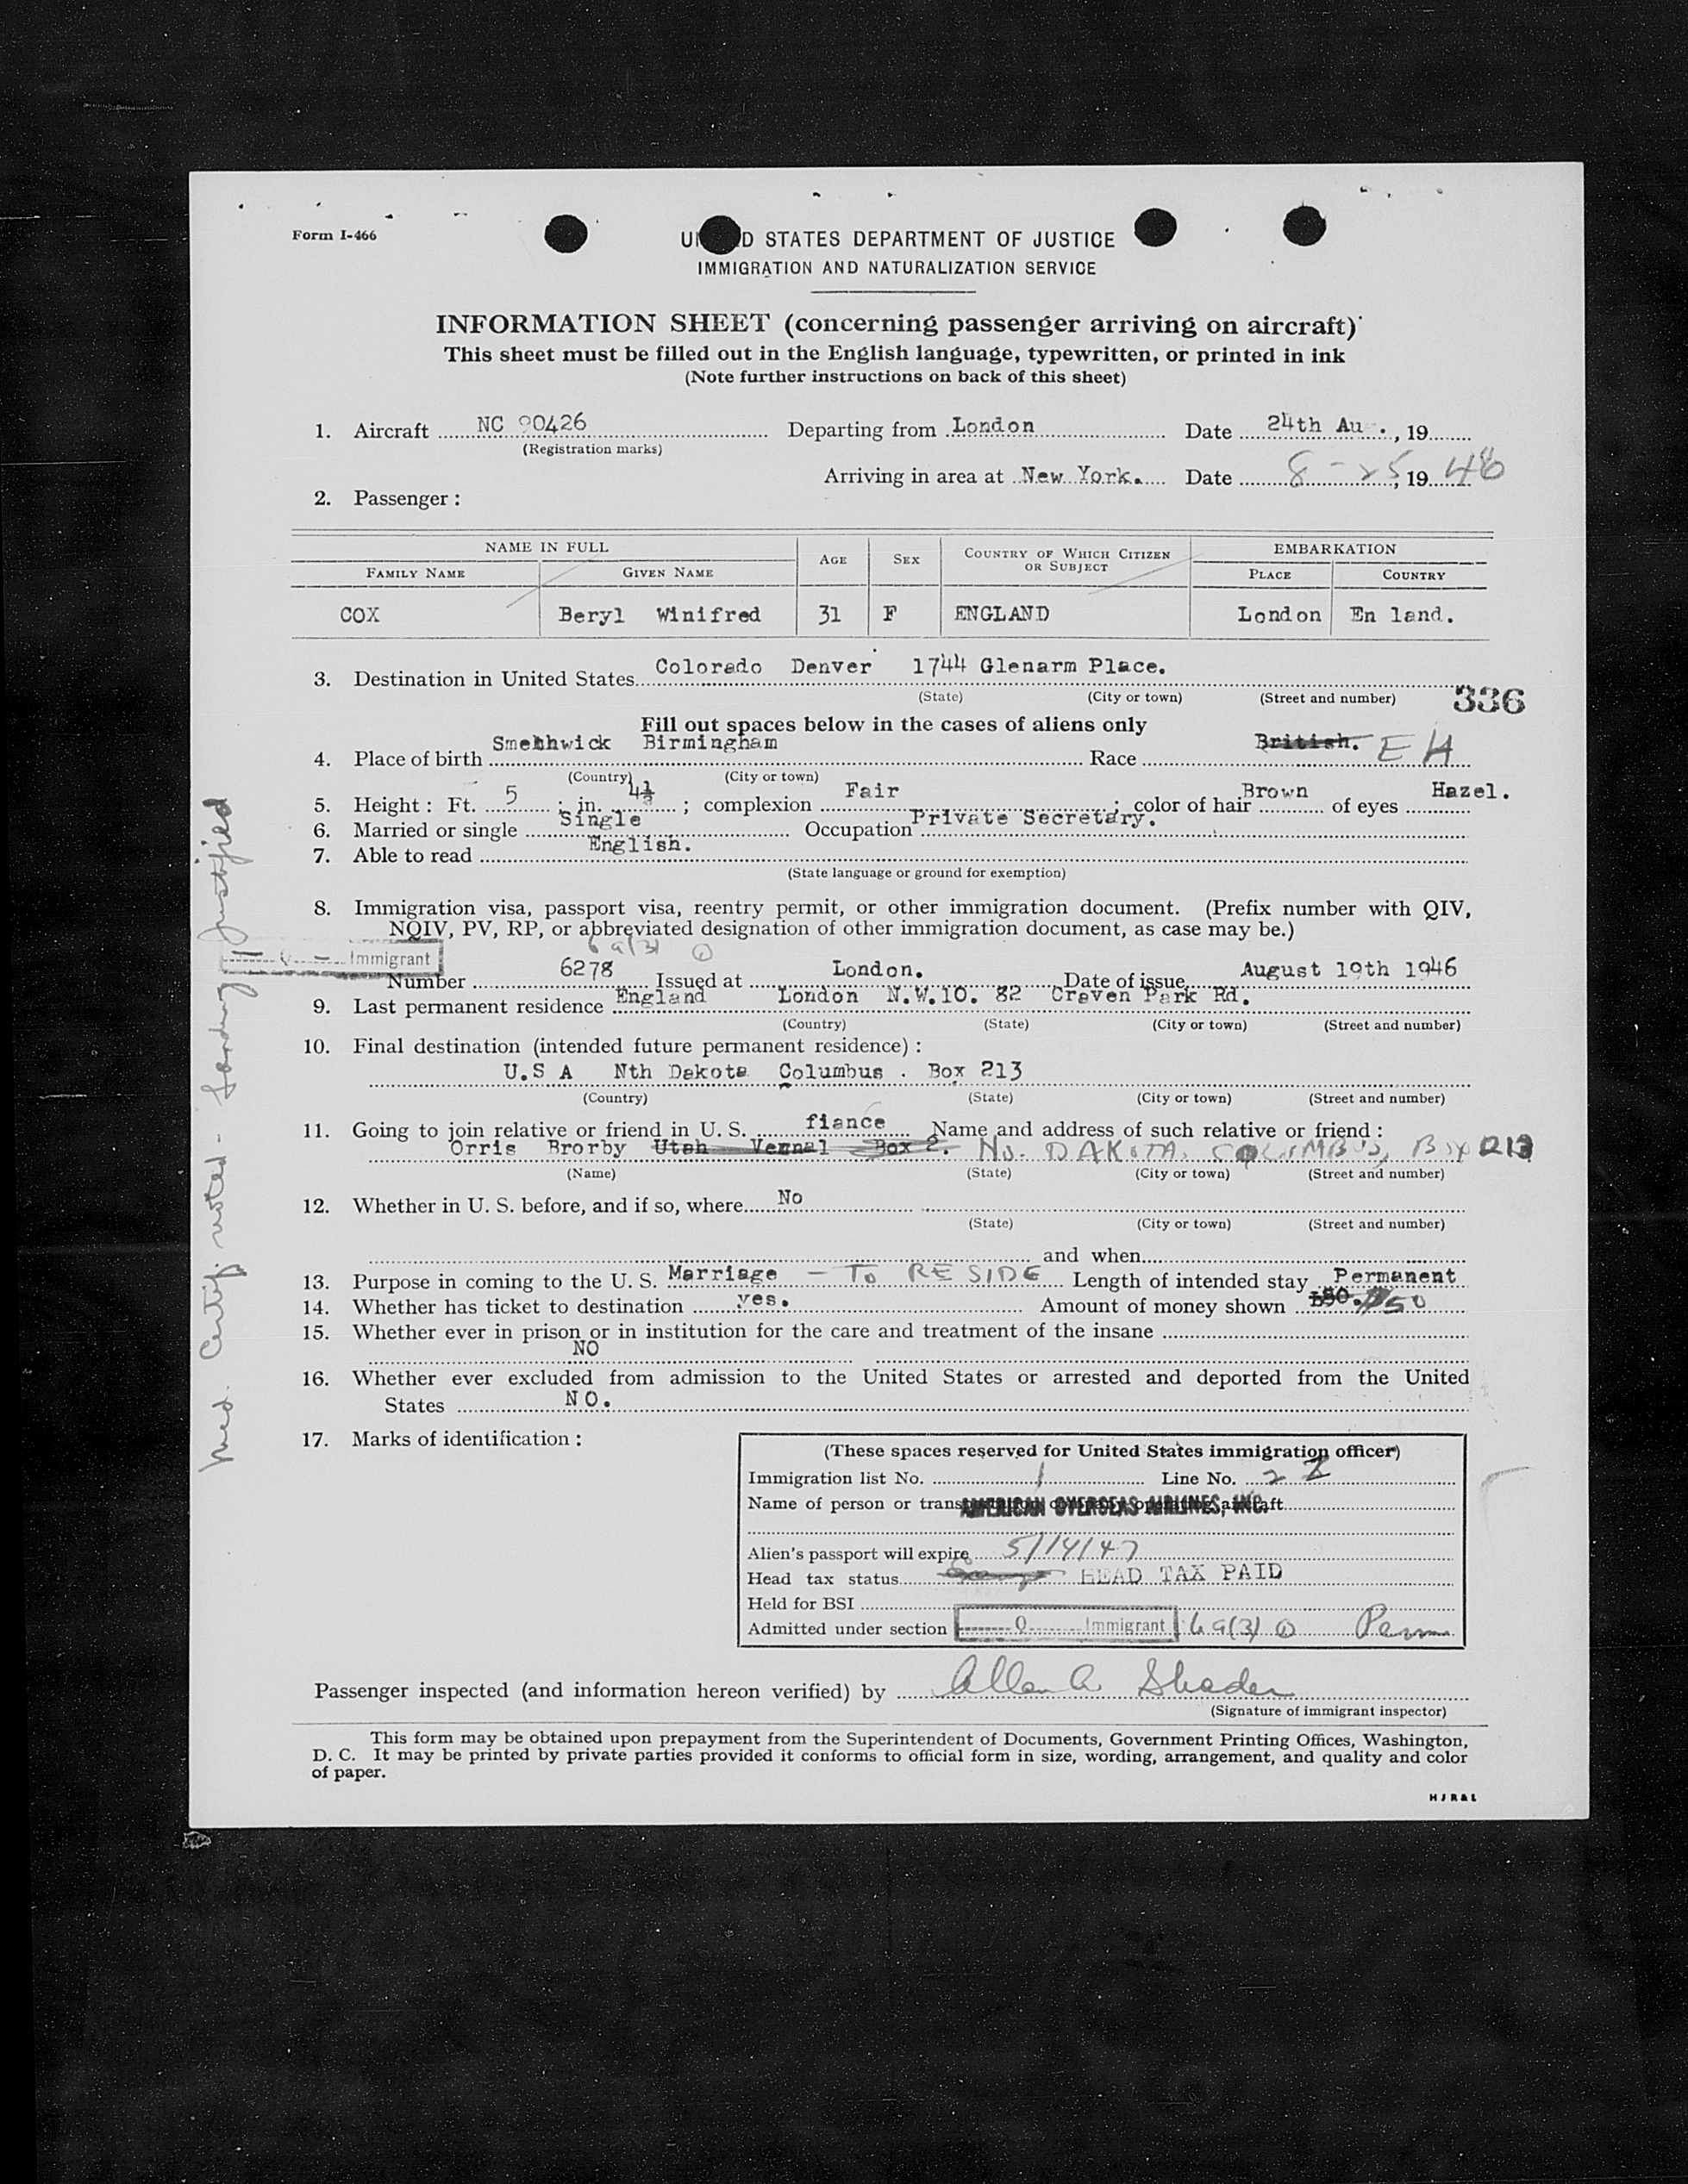 Form I-466
UN D STATES DEPARTMENT OF JUSTICE
IMMIGRATION AND NATURALIZATION SERVICE
INFORMATION SHEET (concerning passenger arriving on aircraft)
This sheet must be filled out in the English language, typewritten, or printed in ink
(Note further instructions on back of this sheet)
1. Aircraft NC 90426 Departing from London Date 24th Au ., 19
(Registration marks)
Arriving in area at New York. Date 8-25, 19 46
2. Passenger :
NAME IN FULL AGE SEX COUNTRY OF WHICH CITIZEN OR SUBJECT EMBARKATION
FAMILY NAME GIVEN NAME PLACE COUNTRY
COX Beryl Winifred 31 F ENGLAND London En land.
3. Destination in United States Colorado Denver 1744 Glenarm Place.
(State) (City or town) (Street and number)
336
Fill out spaces below in the cases of aliens only
4. Place of birth Smethwick Birmingham Race British. EH
(Country) (City or town)
5. Height : Ft. 5 ; in. 4½ ; complexion Fair ; color of hair Brown of eyes Hazel.
6. Married or single Single Occupation Private Secretary.
7. Able to read English.
(State language or ground for exemption)
8. Immigration visa, passport visa, reentry permit, or other immigration document. (Prefix number with QIV,
NQIV, PV, RP, or abbreviated designation of other immigration document, as case may be.)
6a(3) ①
Q Immigrant
Number 6278 Issued at London. Date of issue August 19th 1946
9. Last permanent residence England London N.W.10. 82 Craven Park Rd.
(Country) (State) (City or town) (Street and number)
10. Final destination (intended future permanent residence) :
U.S A Nth Dakota Columbus . Box 213
(Country) (State) (City or town) (Street and number)
11. Going to join relative or friend in U. S. fiance Name and address of such relative or friend :
Orris Brorby Utah Vernal Box 2. No. DAKOTA, COLUMBUS, Box 213
(Name) (State) (City or town) (Street and number)
12. Whether in U. S. before, and if so, where No
(State) (City or town) (Street and number)
and when
13. Purpose in coming to the U. S. Marriage - TO RESIDE Length of intended stay Permanent
14. Whether has ticket to destination yes. Amount of money shown £50. $50
15. Whether ever in prison or in institution for the care and treatment of the insane
NO
16. Whether ever excluded from admission to the United States or arrested and deported from the United
States NO.
17. Marks of identification :
(These spaces reserved for United States immigration officer)
Immigration list No. 1 Line No. 2
Name of person or transportation company operating aircraft
AMERICAN OVERSEAS AIRLINES, INC.
Alien's passport will expire 5/14/47
Head tax status HEAD TAX PAID
Held for BSI
Admitted under section Q Immigrant 6a(3) ① Perm
Passenger inspected (and information hereon verified) by Allen A. Shader
(Signature of immigrant inspector)
This form may be obtained upon prepayment from the Superintendent of Documents, Government Printing Offices, Washington,
D. C. It may be printed by private parties provided it conforms to official form in size, wording, arrangement, and quality and color
of paper.
HJR&L
Med. Certif. noted - Landing justified